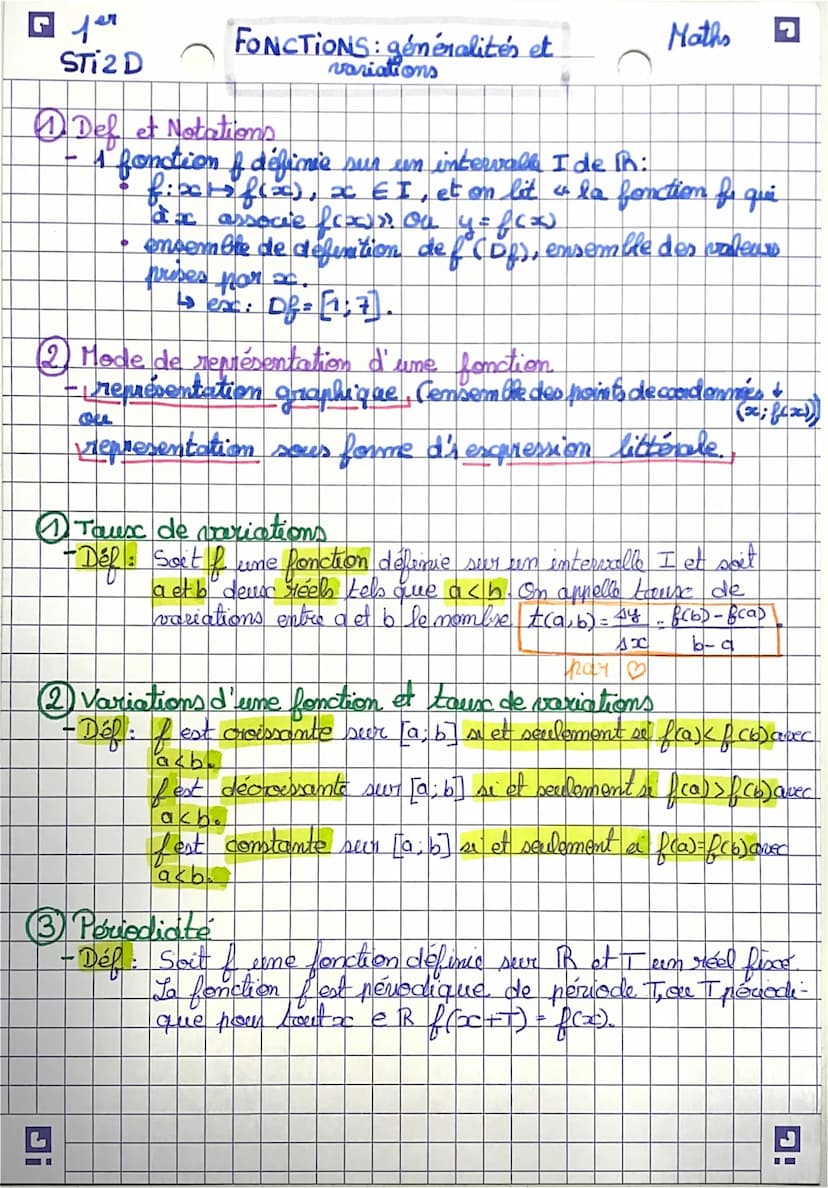 1er
STi2D
FONCTIONS : généralités et
variations
Maths
① Def et Notations
- 1 fonction f définie sur un intervalle I de ℝ :
• f : x ↦ f(x), x ∈ I, et on lit « la fonction f, qui
à x associe f(x) ». Ou y = f(x)
• ensemble de définition de f (Df), ensemble des valeurs
prises par x.
↳ ex : Df = [1 ; 7].
② Mode de représentation d'une fonction
- représentation graphique, (ensemble des points de coordonnées ↓
(x ; f(x)))
ou
representation sous forme d's expression littérale.
① Taux de variations
- Déf : Soit f une fonction définie sur un intervalle I et soit
a et b deux réels tels que a < b. On appelle taux de
variations entre a et b le nombre t(a,b) = Δy/Δx = f(b) - f(a)/b - a
par ♡
② Variations d'une fonction et taux de variations
- Déf : f est croissante sur [a ; b] si et seulement si f(a) < f(b) avec
a < b.
f est décroissante sur [a ; b] si et seulement si f(a) > f(b) avec
a < b.
f est constante sur [a ; b] si et seulement si f(a) = f(b) avec
a < b.
③ Périodicité
- Déf : Soit f une fonction définie sur ℝ et T un réel fixé.
La fonction f est périodique de période T, ou T périodi-
que pour tout x ∈ ℝ f(x+T) = f(x).